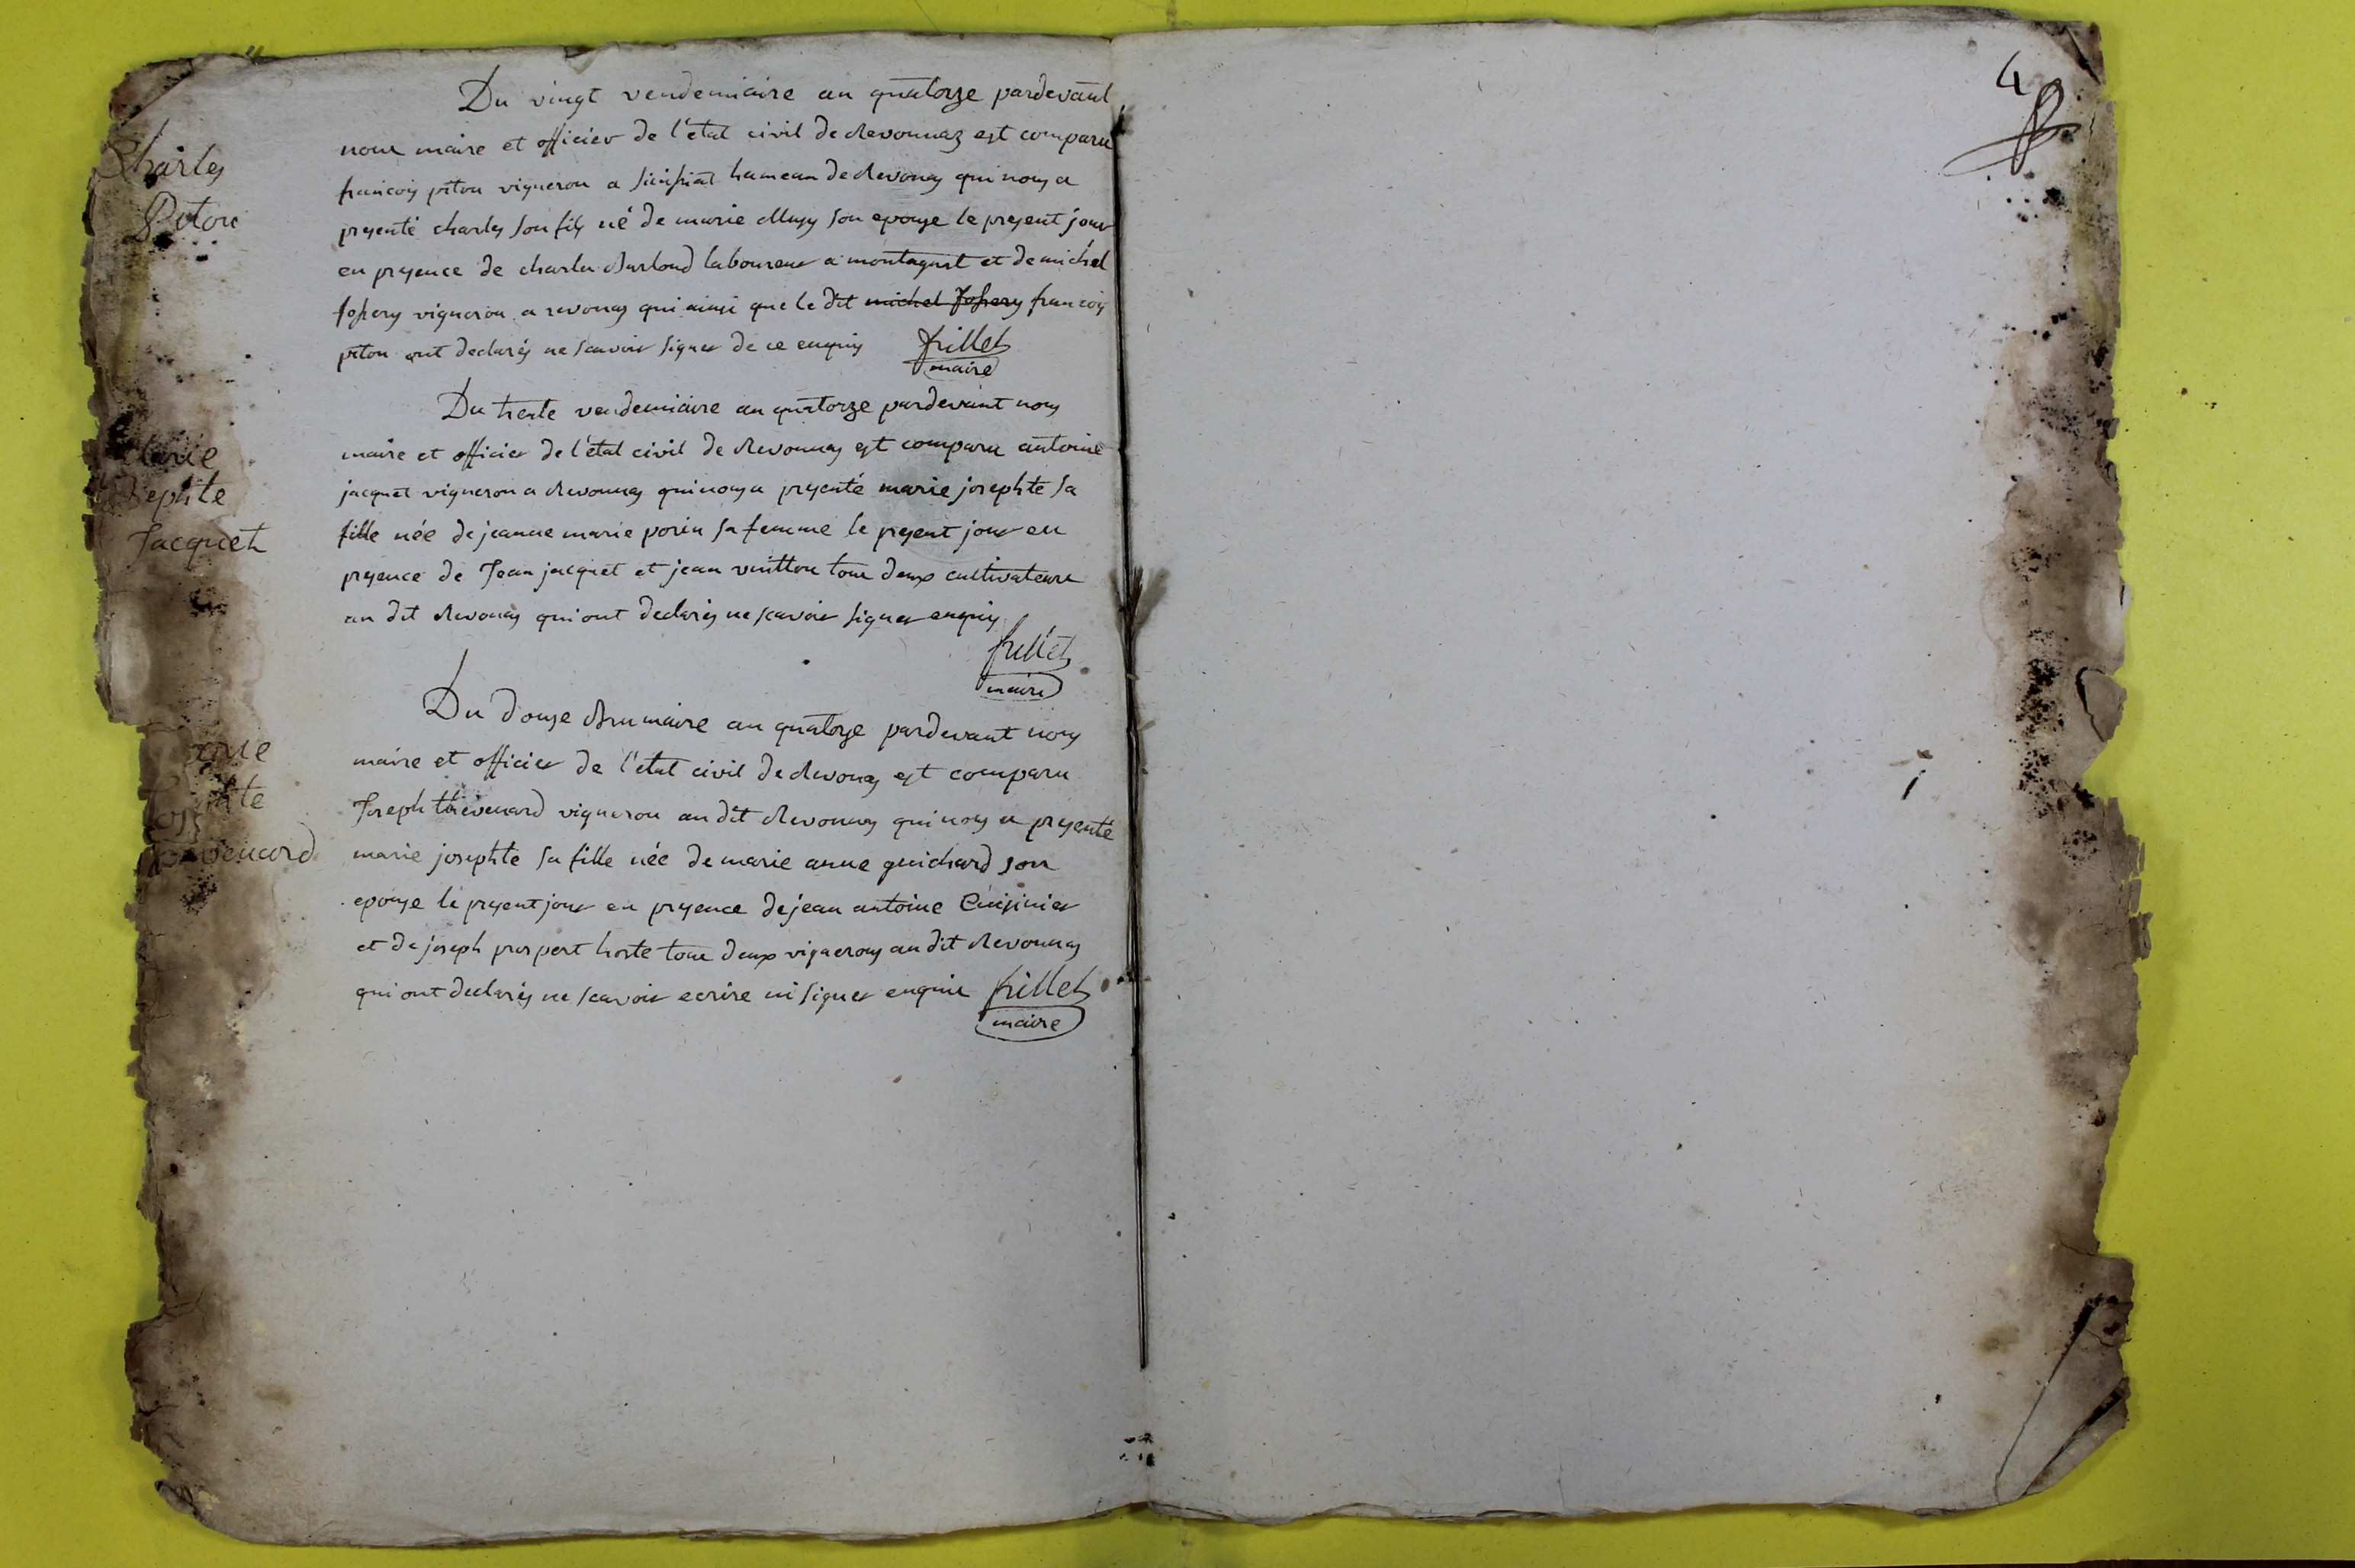 Charles
Piton
Du vingt vendemiaire an quatorze pardevant
nous maire et officier de l'état civil de Revonnaz est comparu
francois piton vigneron a hameau de Revonas qui nous a
presenté charles son fils né de marie son epouse le present jour
en presence de charles laboureur a montagnat et de michel
vigneron a revonas qui ainsi que le dit michel francois
piton ont declarés ne scavoir signer de ce enquis frillet
maire
Marie
josephte
Jacquet
Du trente vendemiaire an quatorze pardevant nous
maire et officier de l'état civil de Revonnas est comparu antoine
jacquet vigneron a Revonnas qui nous a presenté marie josephte sa
fille née de jeanne marie sa femme le present jour en
presence de Jean jacquet et jean tous deux cultivateurs
au dit Revonas qui ont declarés ne scavoir signer enquis
frillet
maire
marie
josephte
thevenard
Du douze Brumaire an quatorze pardevant nous
maire et officier de l'état civil de Revonas est comparu
Joseph thevenard vigneron au dit Revonnas qui nous a presenté
marie josephte sa fille née de marie anne guichard son
epouse le present jour en presence de jean antoine Cuisinier
et de joseph prospert hoste tous deux vignerons au dit Revonnas
qui ont declarés ne scavoir ecrire ni signer enquis frillet
maire
4